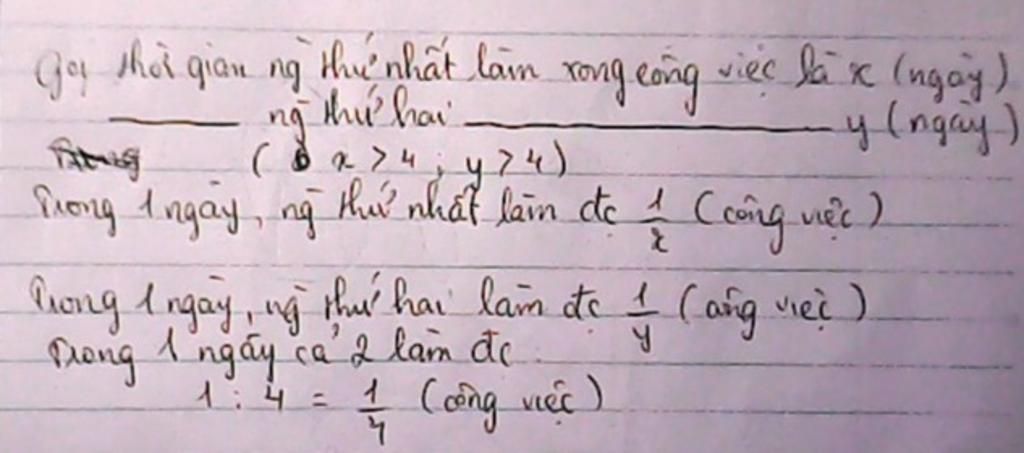 Gọi thời gian ng thứ nhất làm xong công việc là x (ngày)
ng thứ hai y (ngày)
( x > 4 ; y > 4 )
Trong 1 ngày, ng thứ nhất làm đc 1/x (công việc)
Trong 1 ngày, ng thứ hai làm đc 1/y (công việc)
Trong 1 ngày cả 2 làm đc
1 : 4 = 1/4 (công việc)